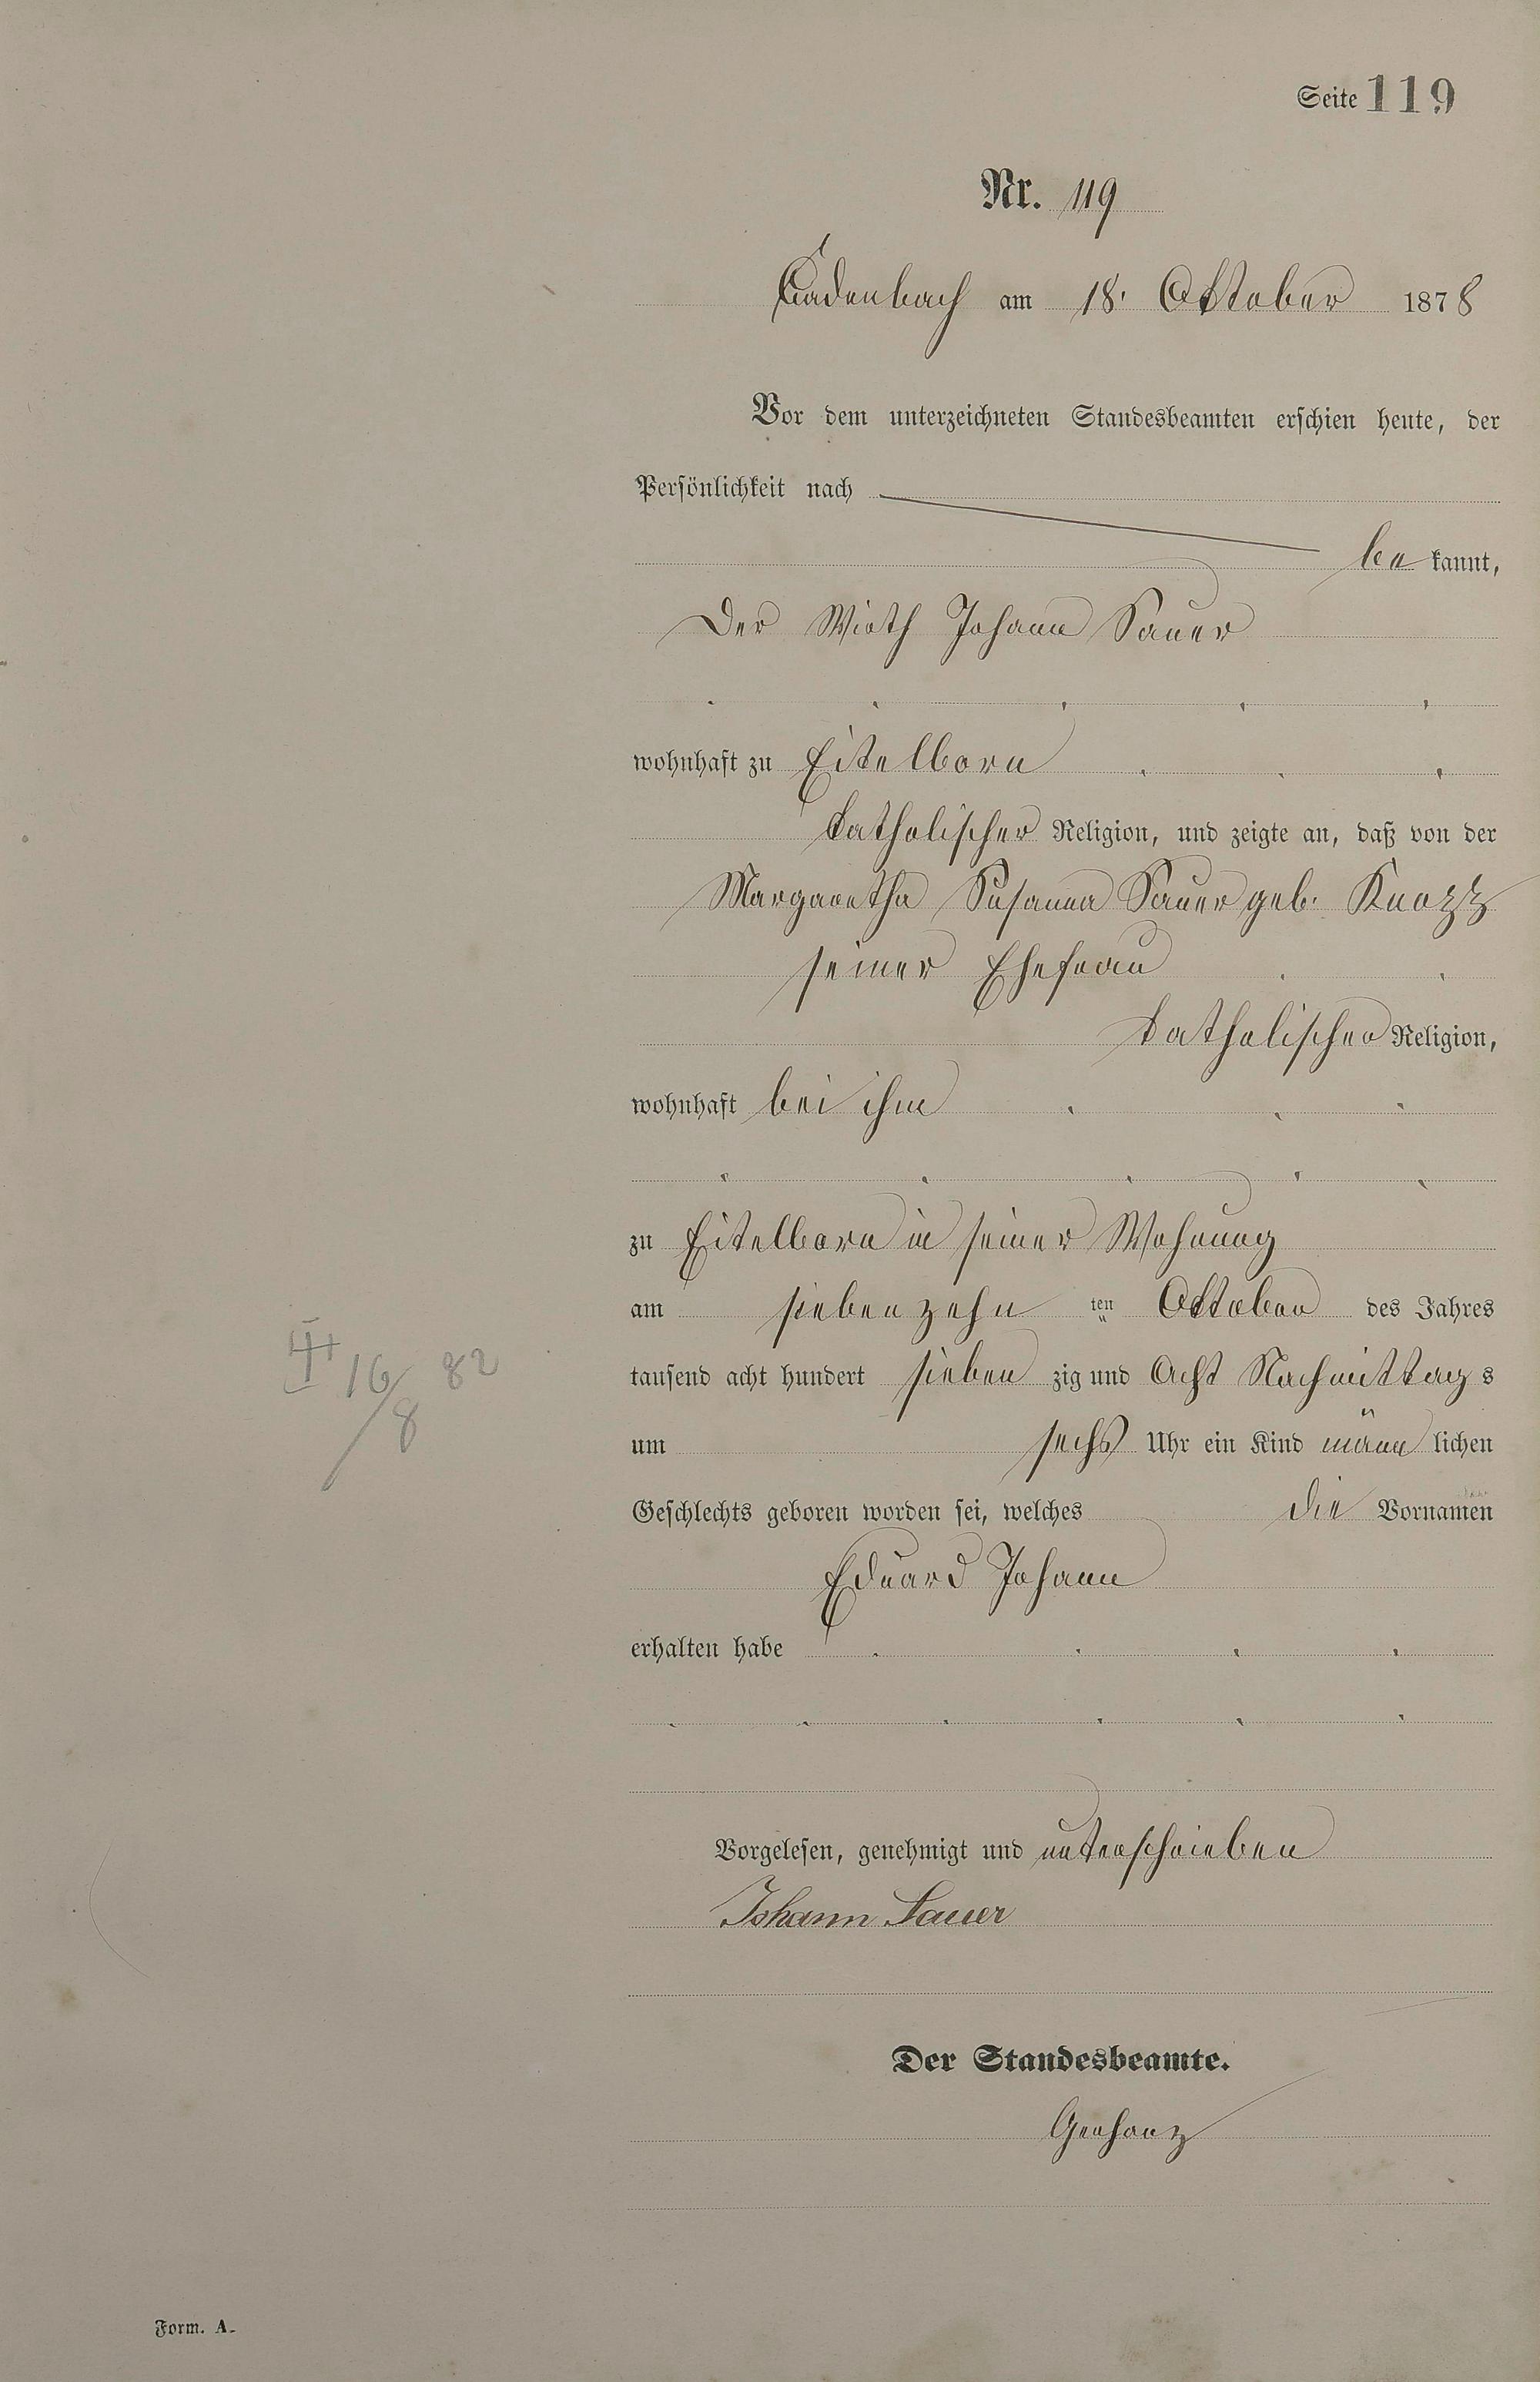 Seite 119
Nr. 119
Cadenbach am 18. Oktober 1878
Vor dem unterzeichneten Standesbeamten erschien heute, der
Persönlichkeit nach
be kannt,
Der Wirth Johann Sauer
wohnhaft zu Eitelborn
katholischer Religion, und zeigte an, daß von der
Margaretha Susanna Sauer geb.
seiner Ehefrau
katholischer Religion,
wohnhaft bei ihm
zu Eitelborn in seiner Wohnung
am siebenzehn ten Oktober des Jahres
tausend acht hundert sieben zig und Acht Nachmittag s
um sechs Uhr ein Kind männ lichen
Geschlechts geboren worden sei, welches die Vornamen
Eduard Johann
erhalten habe
Vorgelesen, genehmigt und unterschrieben
Johann Sauer
Der Standesbeamte.
Gerharz
16/8 82
Form. A.